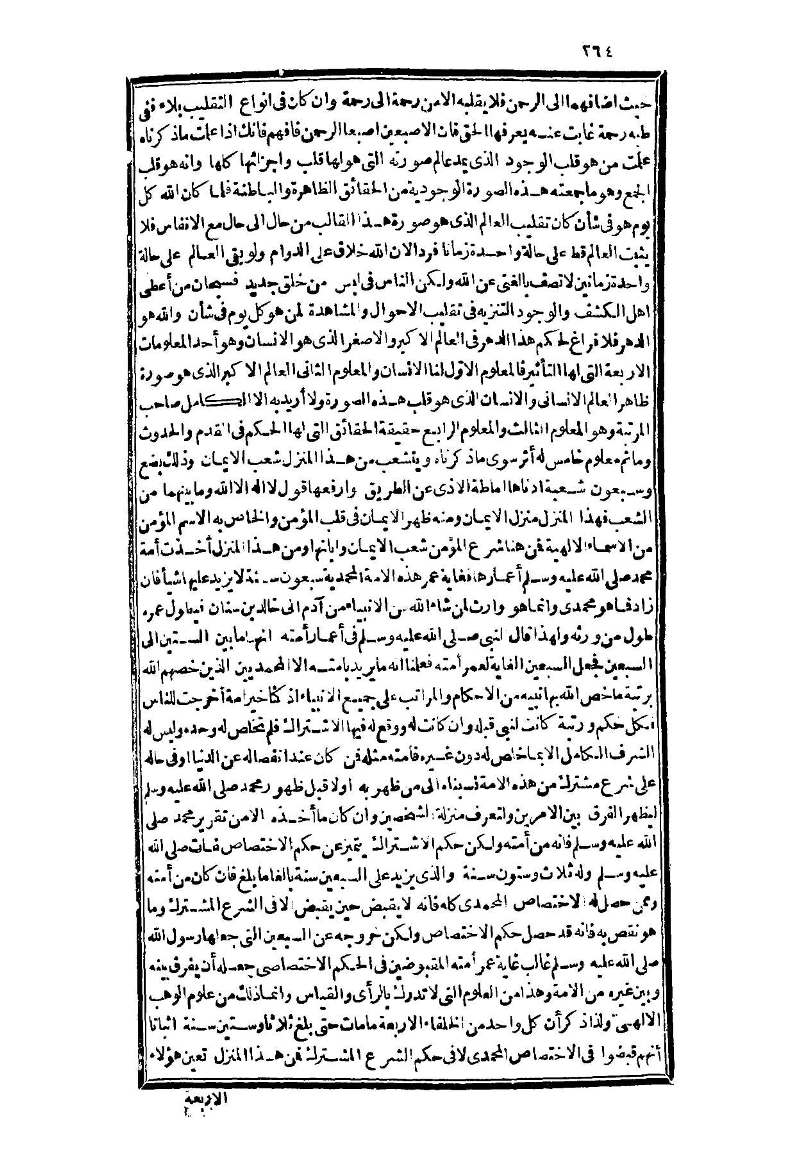 ٢٦٤
حيث اضافهما الى الرحمن فلا يقلبه الا من رحمة الى رحمة وان كان في انواع التقليب بلاء ففى
طيه رحمة غابت عنه يعرفها الحق فان الاصبعين اصبعا الرحمن فافهم فانك اذا علمت ماذكرناه
علمت من هو قلب الوجود الذى يمد عالم صورته التى هو لها قلب واجزائها كلها وانه هو قلب
الجمع وهو ما جمعته هذه الصورة الوجودية من الحقائق الظاهرة والباطنة فلما كان الله كل
يوم هو فى شأن كان تقليب العالم الذى هو صورة هذا القالب من حال الى حال مع الانفاس فلا
يثبت العالم قط على حالة واحدة زمانا فردا لان الله خلاق على الدوام ولو بقى العالم على حالة
واحدة زمانين لاتصف بالغنى عن الله ولكن الناس فى لبس من خلق جديد فسبحان من أعطى
اهل الكشف والوجود التنزيه فى تقليب الاحوال والمشاهدة لمن هو كل يوم فى شأن والله هو
الدهر فلا فراغ لحكم هذا الدهر فى العالم الاكبر والاصغر الذى هو الانسان وهو أحد المعلومات
الاربعة التى لها التأثير فالمعلوم الاول لنا الانسان والمعلوم الثانى العالم الاكبر الذى هو صورة
ظاهر العالم الانسانى والانسان الذى هو قلب هذه الصورة ولا أريد به الا الكامل صاحب
المرتبة وهو المعلوم الثالث والمعلوم الرابع حقيقة الحقائق التى لها الحكم فى القدم والحدوث
وما ثم معلوم خامس له أثر سوى ماذكرناه ويتشعب من هذا المنزل شعب الايمان وذلك بضع
وسبعون شعبة ادناها اماطة الاذى عن الطريق وارفعها قول لا اله الا الله وما بينهما من
الشعب فهذا المنزل منزل الايمان ومنه ظهر الايمان فى قلب المؤمن والخاص به الاسم المؤمن
من الاسماء الالهية فمن هنا شرع المؤمن شعب الايمان وابانها ومن هذا المنزل أخذت أمة
محمد صلى الله عليه وسلم أعمارها فغاية عمر هذه الامة المحمدية سبعون سنة لا يزيد عليها شيأ فان
زاد فما هو محمدى وانما هو وارث لمن شاء الله من الانبياء من آدم الى خالد بن سنان فيطول عمره
طول من ورثه ولهذا قال النبى صلى الله عليه وسلم فى أعمار أمته انها ما بين الستين الى
السبعين فجعل السبعين الغاية لعمر أمته فعلمنا انه ما يريد بامته الا المحمديين الذين خصهم الله
برتبة ماخص الله بها نبيه من الاحكام والمراتب على جميع الانبياء اذ كنا خير امة أخرجت للناس
فكل حكم ورتبة كانت لنبى قبله وان كانت له ووقع له فيها الاشتراك فلم تخلص له وحده وليس له
الشرف الكامل الا بما خلص له دون غيره فامته مثله فمن كان عند انفصاله عن الدنيا اوفى حاله
على شرع مشترك من هذه الامة نسبناه الى من ظهر به أولا قبل ظهور محمد صلى الله عليه وسلم
ليظهر الفرق بين الامرين ولتعرف منزلة الشخصين وان كان ما أخذه الا من تقرير محمد صلى
الله عليه وسلم فانه من أمته ولكن حكم الاشتراك يتميز عن حكم الاختصاص فمات صلى الله
عليه وسلم وله ثلاث وستون سنة والذى يزيد على السبعين سنة بالغا ما بلغ فان كان من أمته
وممن حصل له الاختصاص المحمدى كله فانه لا يقبض حين يقبض الا فى الشرع المشترك وما
هو نقص به فانه قد حصل حكم الاختصاص ولكن خروجه عن السبعين التى جعلها رسول الله
صلى الله عليه وسلم غالب غاية عمر أمته المقبوضين فى الحكم الاختصاصى جعله أن يفرق بينه
وبين غيره من الامة وهذا من العلوم التى لا تدرك بالرأى والقياس وانما ذلك من علوم الوهب
الالهى ولذا ذكر أن كل واحد من الخلفاء الاربعة ما مات حتى بلغ ثلاثا وستين سنة اثباتا
أنهم قبضوا فى الاختصاص المحمدى لا فى حكم الشرع المشترك فمن هذا المنزل تعين هؤلاء
الاربعة